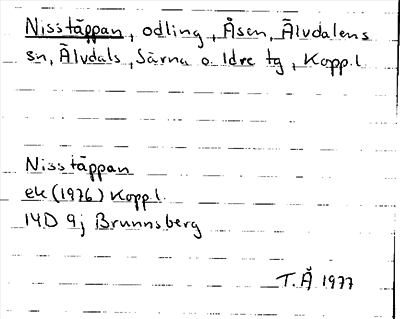 Nisstäppan, odling, Åsen, Älvdalens
sn, Älvdals, Särna o. Idre tg, Koppl.
Nisstäppan
ek (1976) Koppl.
14D 9j Brunnsberg
T.Å 1977